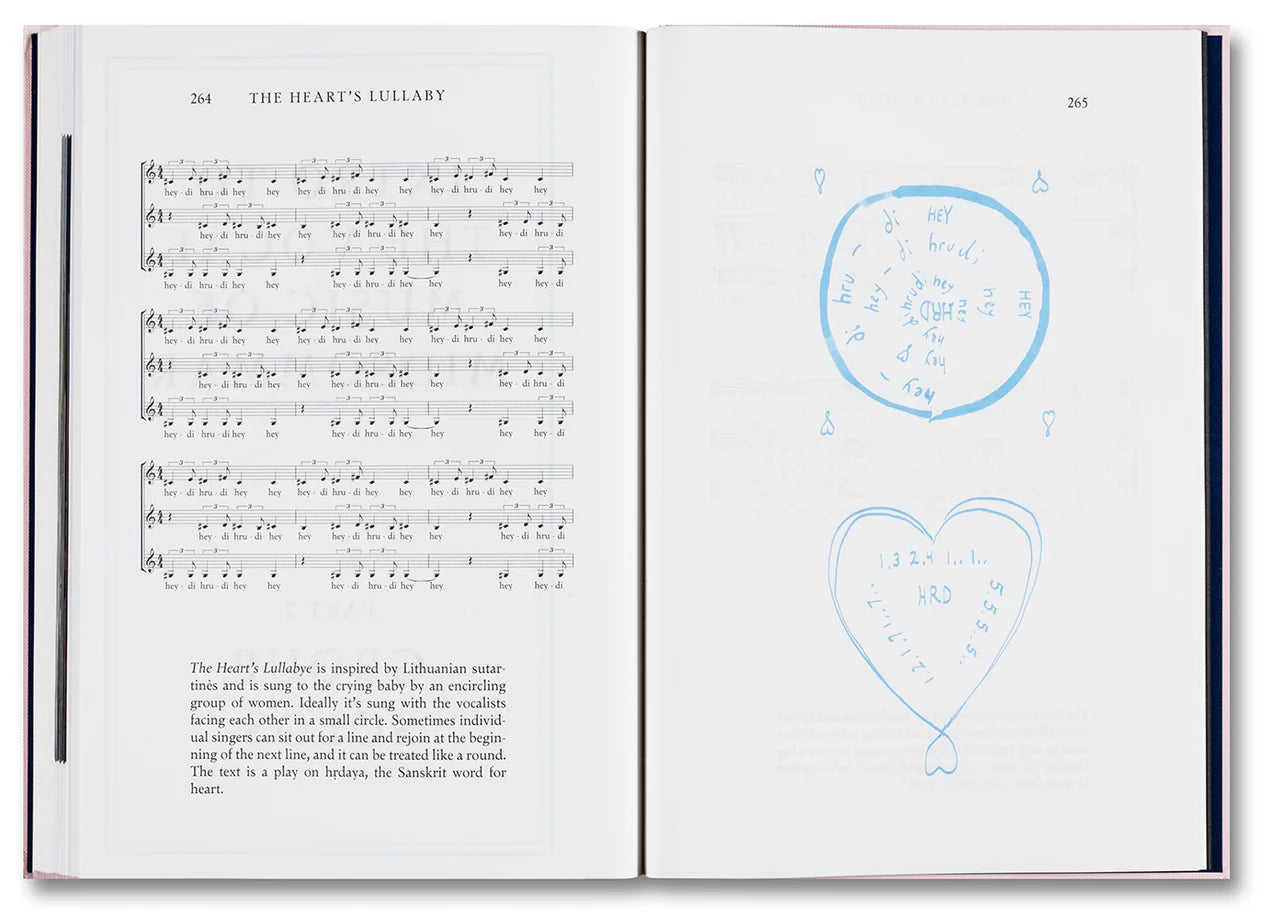 264 THE HEART'S LULLABY
hey - di hru - di hey hey hey - di hru - di hey hey hey - di hru - di hey hey
hey - di hru - di hey hey hey - di hru - di hey hey hey - di hru - di
hey - di hru - di hey hey hey - di hru - di hey hey hey hey - di
hey - di hru - di hey hey hey - di hru - di hey hey hey - di hru - di hey hey
hey - di hru - di hey hey hey - di hru - di hey hey hey - di hru - di
hey - di hru - di hey hey hey - di hru - di hey hey hey hey - di
hey - di hru - di hey hey hey - di hru - di hey hey hey - di hru - di hey hey
hey - di hru - di hey hey hey - di hru - di hey hey hey - di hru - di
hey - di hru - di hey hey hey - di hru - di hey hey hey hey - di
The Heart's Lullabye is inspired by Lithuanian sutar-
tinės and is sung to the crying baby by an encircling
group of women. Ideally it's sung with the vocalists
facing each other in a small circle. Sometimes individ-
ual singers can sit out for a line and rejoin at the begin-
ning of the next line, and it can be treated like a round.
The text is a play on hṛdaya, the Sanskrit word for
heart.
265
di HEY
di hrudi
hru -
hey -
hrudi hey
HRD
hey
hey
HEY
di
di
hey
hey
hey -
1,3 2,4 1.. 1..
HRD
5.5.5.5..5..
1,2,1,7 1..7..